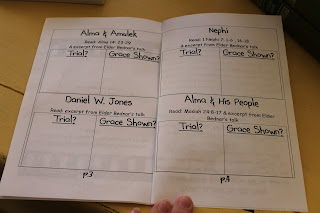 Alma & Amalek
Read: Alma 14: 23-29
& excerpt from Elder Bednar's talk
Trial?
Grace Shown?
Daniel W. Jones
Read: excerpt from Elder Bednar's talk
Trial?
Grace Shown?
p.3
Nephi
Read: 1 Nephi 7: 1-6, 16-18
& excerpt from Elder Bednar's talk
Trial?
Grace Shown?
Alma & His People
Read: Mosiah 24:8-17 & excerpt from Elder
Bednar's talk
Trial?
Grace Shown?
p.4